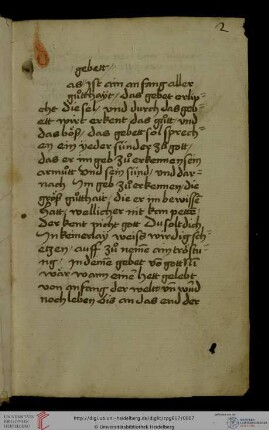 2
gebett
as ist ain anfang aller
gůtthayt / das gebet erlüch=
cht die sel / vnd durch das geb=
ett wirt erkent das gůtt vnd
das böß / das gebett sol sprech=
en ein yeder sünder zů gott /
das er im geb zů erkennen sein
armůtt vnd sein sünd / vnd dar=
nach im geb zů erkennen / die
groß gůtthait / die er im bewisse
hatt / wellicher nit kan
der kent nicht gott Du solt dich
In keinerlay weiß wirdig sch=
etzen / auff zů neme ain tröstu=
ng / in deine gebet vō gott
wār wann eine hett gelebt
von anfang der welt vn̄ wůrd
noch leben bis an das end der
http://digi.ub.uni-heidelberg.de/diglit/cpg617/0007
© Universitätsbibliothek Heidelberg